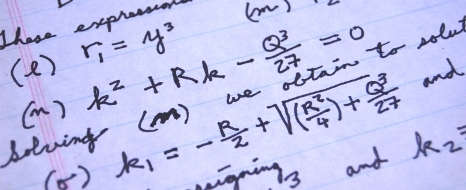 These expressions
(l) r₁ = y³ (m)
(n) k² + Rk - Q³/27 = 0
Solving (m) we obtain to solut
(o) k₁ = - R/2 + √(R²/4) + Q³/27 and
and k₂ =